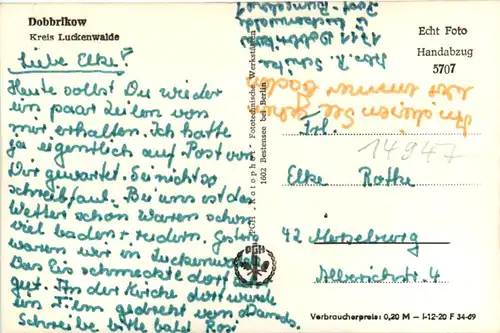 Dobbrikow
Kreis Luckenwalde
Liebe Elke!
Heute sollst Du wieder
ein paar Zeilen von
mir erhalten. Ich hatte
ja eigentlich auf Post von
Dir gewartet. Sei nicht so
schreibfaul. Bei uns ist das
Wetter schön. Waren schon
viel baden + rudern. Gestern
waren wir in Luckenwalde.
Das Eis schmeckte dort
gut. In der Kirche dort wurde
ein Film gedreht
Schreibe bitte bald Rosi
PGH „Rotophot" Fototechnische Werkstätten
1602 Bestensee bei Berlin
PGH
Abs. R.
1711 Dobbrikow
Kr. Luckenwalde
Post
Echt Foto
Handabzug
5707
In diesen See
wir immer baden
Frl.
14947
Elke Rothe
42 Merseburg
Albrichstr. 4
Verbraucherpreis: 0,20 M — I-12-20 F 34-69